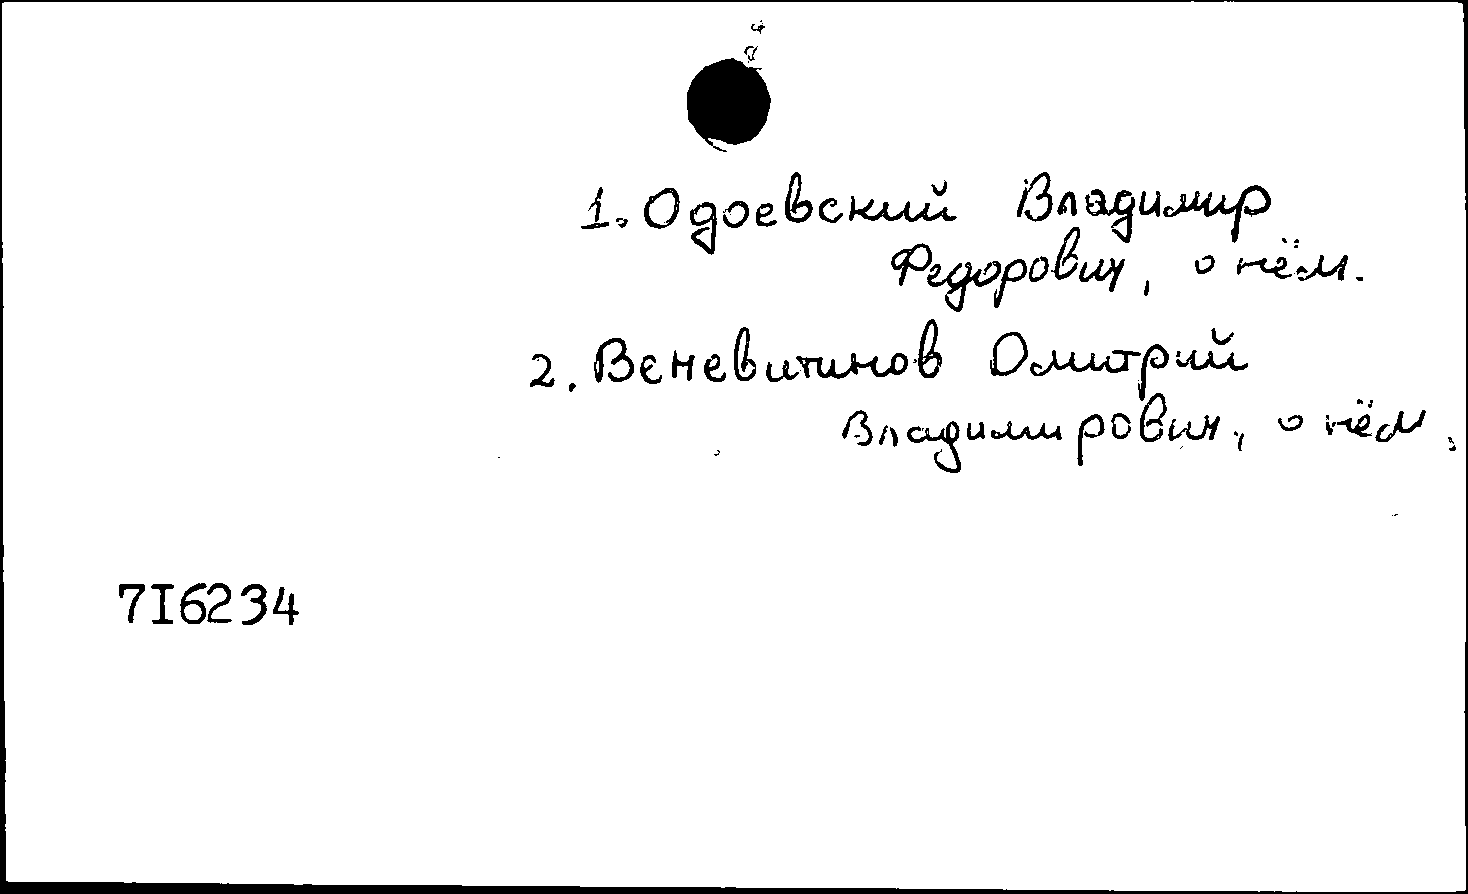 1. Одоевский Владимир
Федорович, о нём.
2. Веневитинов Дмитрий
Владимирович, о нём.
7I6234